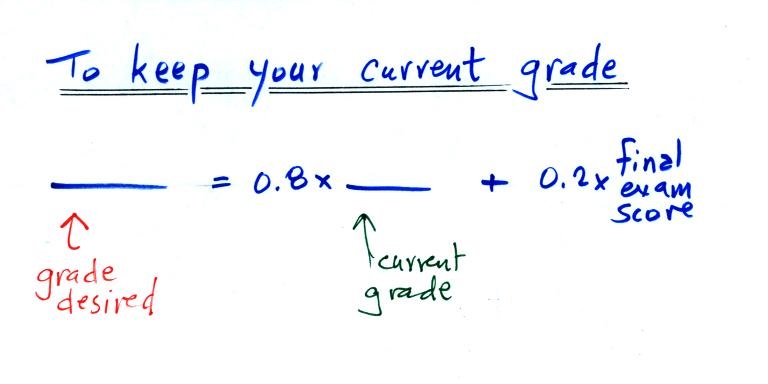 To keep your current grade
____ = 0.8 x ____ + 0.2 x final exam score
↑ grade desired
↑ current grade